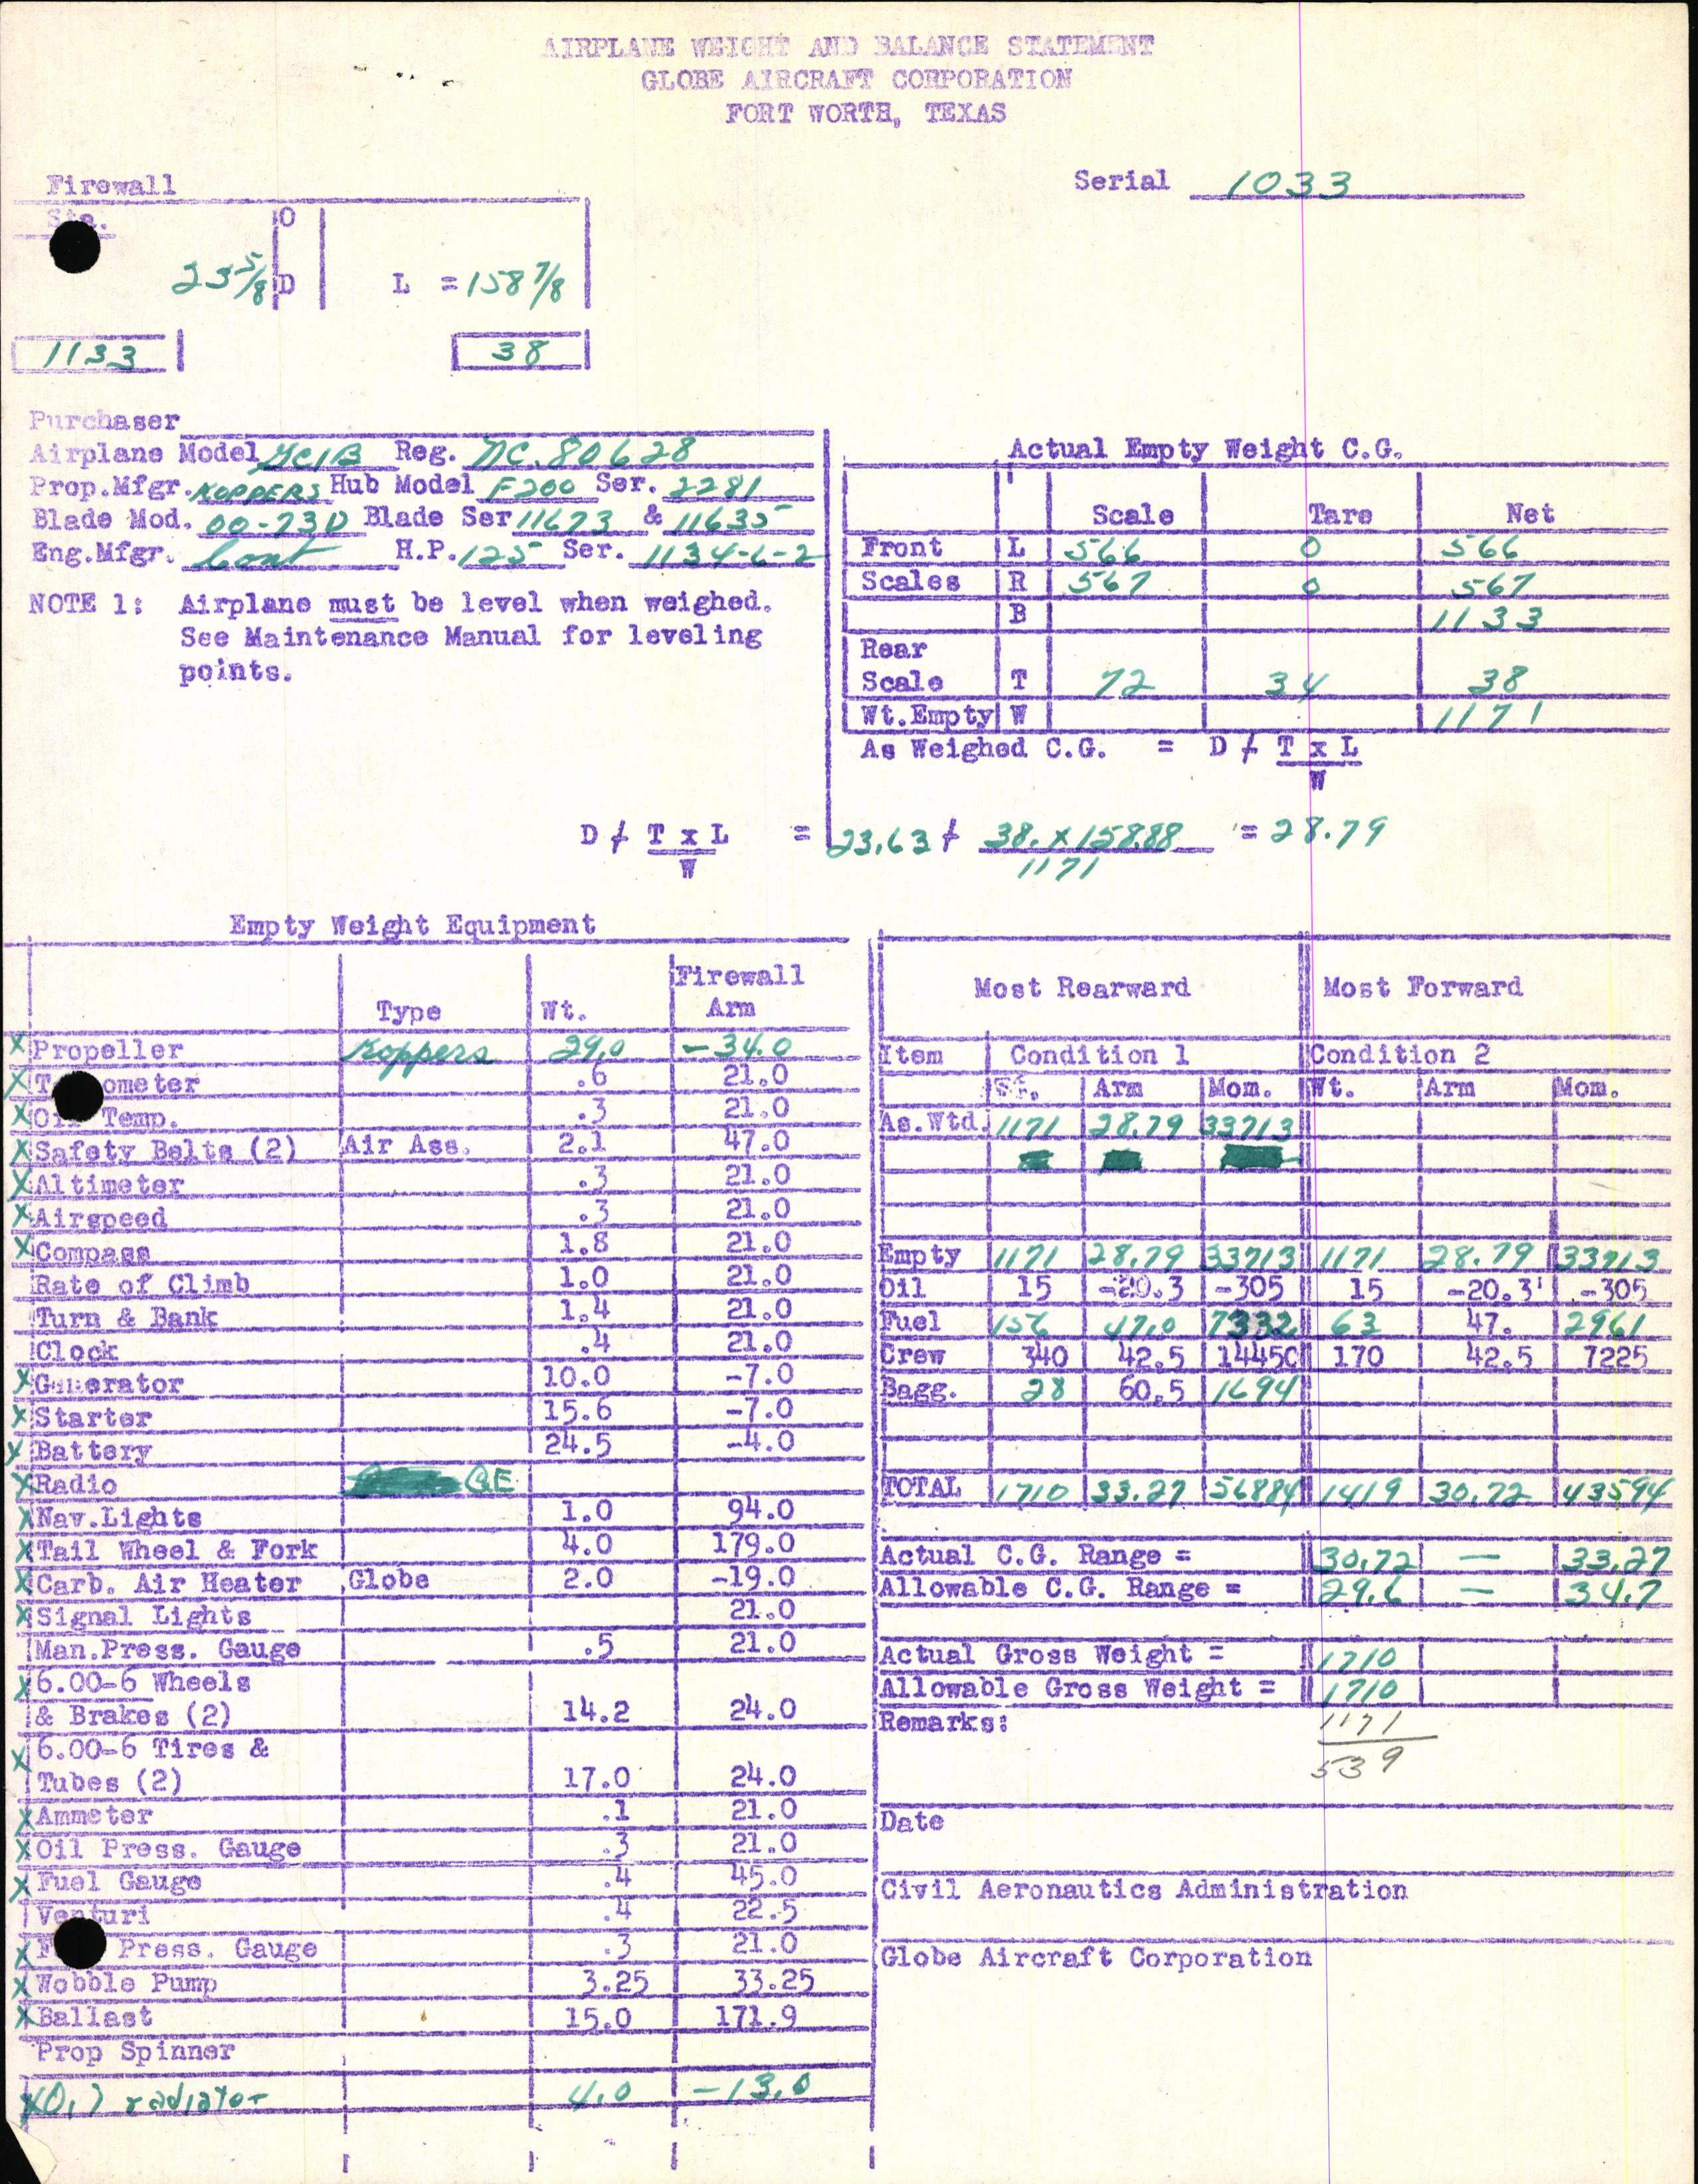 AIRPLANE WEIGHT AND BALANCE STATEMENT
GLOBE AIRCRAFT CORPORATION
FORT WORTH, TEXAS
Firewall
Serial 1033
Sta. O
23 5/8 D L = 158 7/8
1133 38
Purchaser
Airplane Model GC1B Reg. NC.80628
Prop.Mfgr. KOPPERS Hub Model F200 Ser. 2281
Blade Mod. 00-73D Blade Ser 11673 & 11635
Eng.Mfgr. Cont H.P. 125 Ser. 1134-6-2
NOTE 1: Airplane must be level when weighed.
See Maintenance Manual for leveling
points.
Actual Empty Weight C.G.
Scale Tare Net
Front L 566 0 566
Scales R 567 0 567
B 1133
Rear
Scale T 72 34 38
Wt.Empty W 1171
As Weighed C.G. = D ≁ T x L
W
D ≁ T x L = 23.63 + 38. x 158.88 = 28.79
W 1171
Empty Weight Equipment
Type Wt. Firewall
Arm
X Propeller Koppers 29.0 -34.0
X T ometer .6 21.0
X Oil Temp. .3 21.0
X Safety Belts (2) Air Ass. 2.1 47.0
X Altimeter .3 21.0
X Airspeed .3 21.0
X Compass 1.8 21.0
Rate of Climb 1.0 21.0
Turn & Bank 1.4 21.0
Clock .4 21.0
X Generator 10.0 -7.0
X Starter 15.6 -7.0
X Battery 24.5 -4.0
X Radio GE
X Nav.Lights 1.0 94.0
X Tail Wheel & Fork 4.0 179.0
X Carb. Air Heater Globe 2.0 -19.0
X Signal Lights 21.0
Man.Press. Gauge .5 21.0
X 6.00-6 Wheels
& Brakes (2) 14.2 24.0
X 6.00-6 Tires &
Tubes (2) 17.0 24.0
X Ammeter .1 21.0
X Oil Press. Gauge .3 21.0
X Fuel Gauge .4 45.0
Venturi .4 22.5
X F Press. Gauge .3 21.0
X Wobble Pump 3.25 33.25
X Ballast 15.0 171.9
Prop Spinner
X Oil radiator 4.0 -13.0
Most Rearward Most Forward
Item Condition 1 Condition 2
Wt. Arm Mom. Wt. Arm Mom.
As.Wtd. 1171 28.79 33713
Empty 1171 28.79 33713 1171 28.79 33713
Oil 15 -20.3 -305 15 -20.3 -305
Fuel 156 47.0 7332 63 47. 2961
Crew 340 42.5 14450 170 42.5 7225
Bagg. 28 60.5 1694
TOTAL 1710 33.27 56884 1419 30.72 43594
Actual C.G. Range = 30.72 — 33.27
Allowable C.G. Range = 29.6 — 34.7
Actual Gross Weight = 1710
Allowable Gross Weight = 1710
Remarks: 1171
539
Date
Civil Aeronautics Administration
Globe Aircraft Corporation